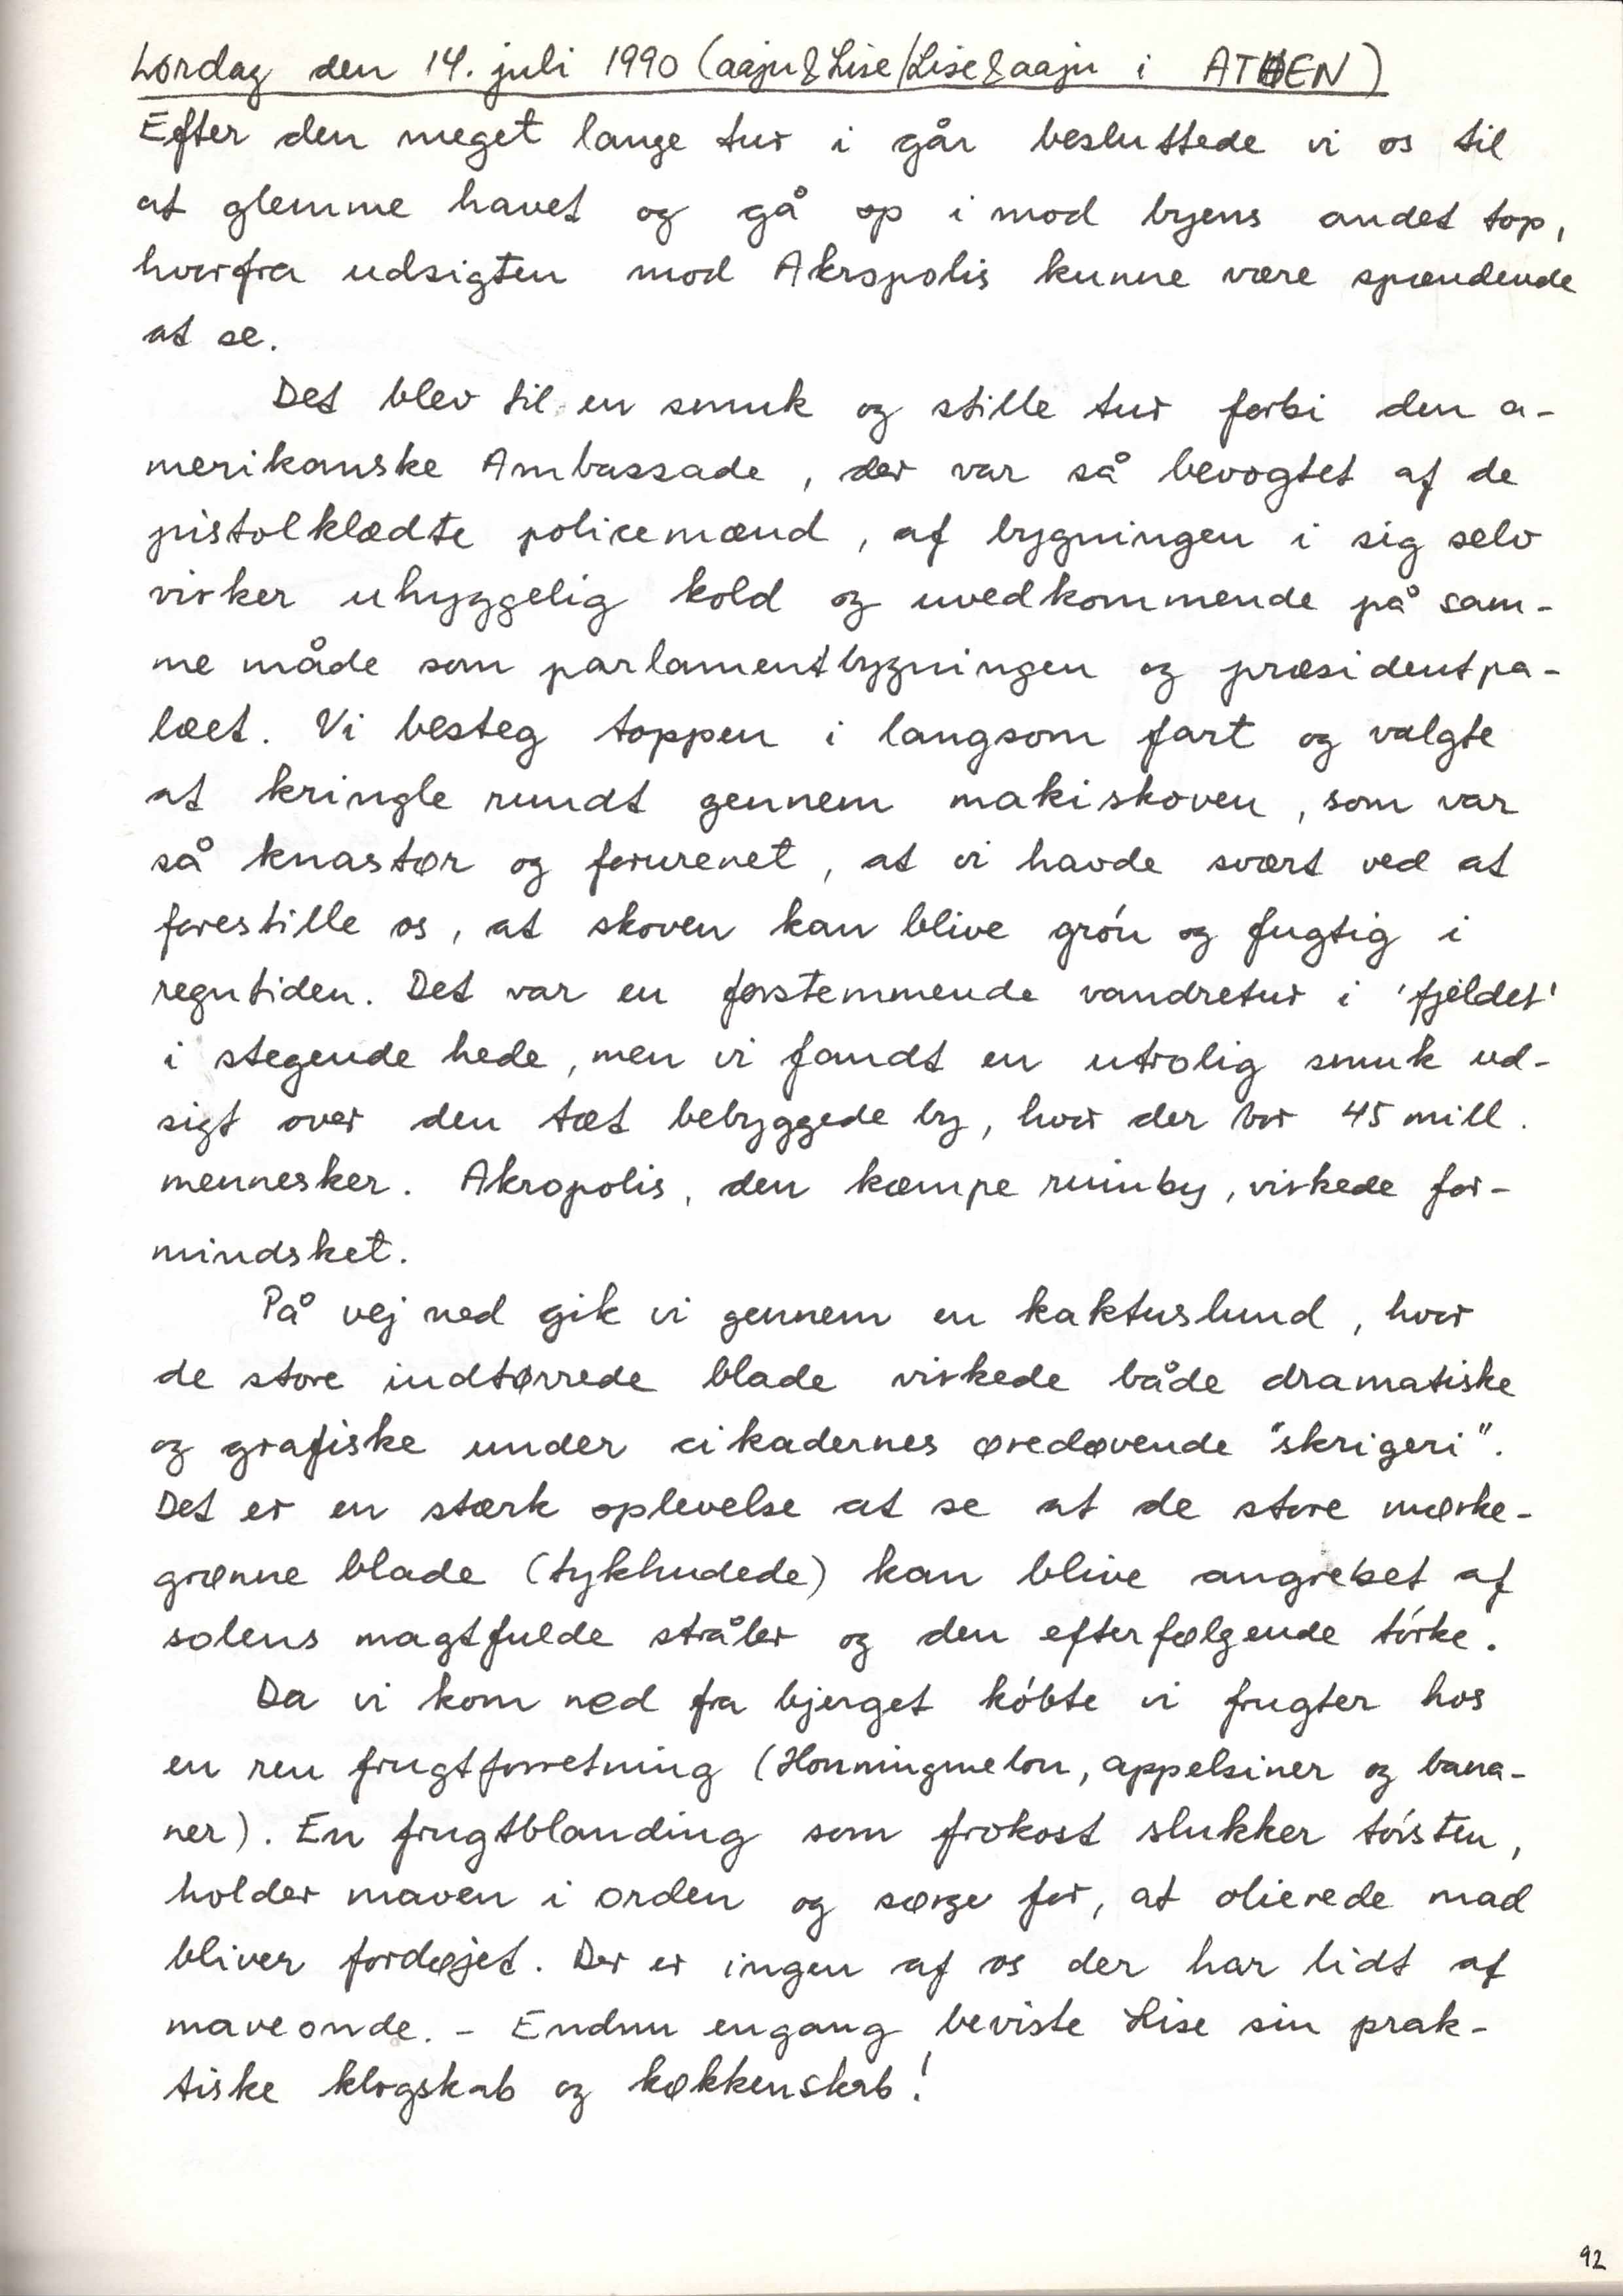 Lørdag den 14. juli 1990 (aaju & Lise/Lise & aaju i ATHEN)
Efter den meget lange tur i går besluttede vi os til
at glemme havet og gå op i mod byens andet top,
hvorfra udsigten mod Akropolis kunne være spændende
at se.
Det blev til en smuk og stille tur forbi den a-
merikanske Ambassade, der var så bevogtet af de
pistolklædte policemænd, af bygningen i sig selv
virker uhyggelig kold og uvedkommende på sam-
me måde som parlamentbygningen og præsidentpa-
læet. Vi besteg toppen i langsom fart og valgte
at kringle rundt gennem makiskoven, som var
så knastør og forurenet, at vi havde svært ved at
forestille os, at skoven kan blive grøn og fugtig i
regntiden. Det var en forstemmende vandretur i 'fjeldet'
i stegende hede, men vi fandt en utrolig smuk ud-
sigt over den tæt bebyggede by, hvor der bor 45 mill.
mennesker. Akropolis, den kæmpe ruinby, virkede for-
mindsket.
På vej ned gik vi gennem en kaktuslund, hvor
de store indtørrede blade virkede både dramatiske
og grafiske under cikadernes øredøvende "skrigeri".
Det er en stærk oplevelse at se at de store mørke-
grønne blade (tykhudede) kan blive angrebet af
solens magtfulde stråler og den efterfølgende tørke.
Da vi kom ned fra bjerget købte vi frugter hos
en ren frugtforretning (Honningmelon, appelsiner og bana-
ner). En frugtblanding som frokost slukker tørsten,
holder maven i orden og sørge for, at olierede mad
bliver fordøjet. Der er ingen af os der har lidt af
maveonde. - Endnu engang beviste Lise sin prak-
tiske klogskab og køkkenskab!
92